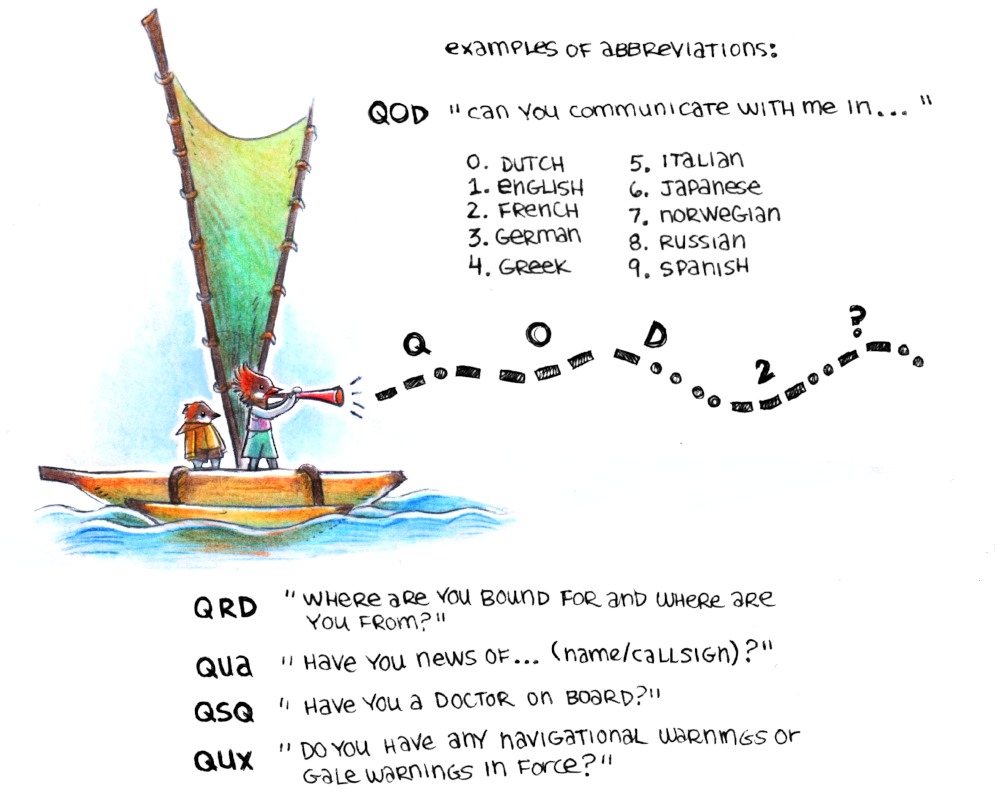 examples of abbreviations:
QOD "can you communicate with me in... "
0. Dutch
1. English
2. French
3. German
4. Greek
5. Italian
6. Japanese
7. Norwegian
8. Russian
9. Spanish
Q O D 2 ?
QRD "Where are you bound for and where are
you from?"
QUA "Have you news of... (name/callsign)?"
QSQ "Have you a doctor on board?"
QUX "Do you have any navigational warnings or
gale warnings in force?"